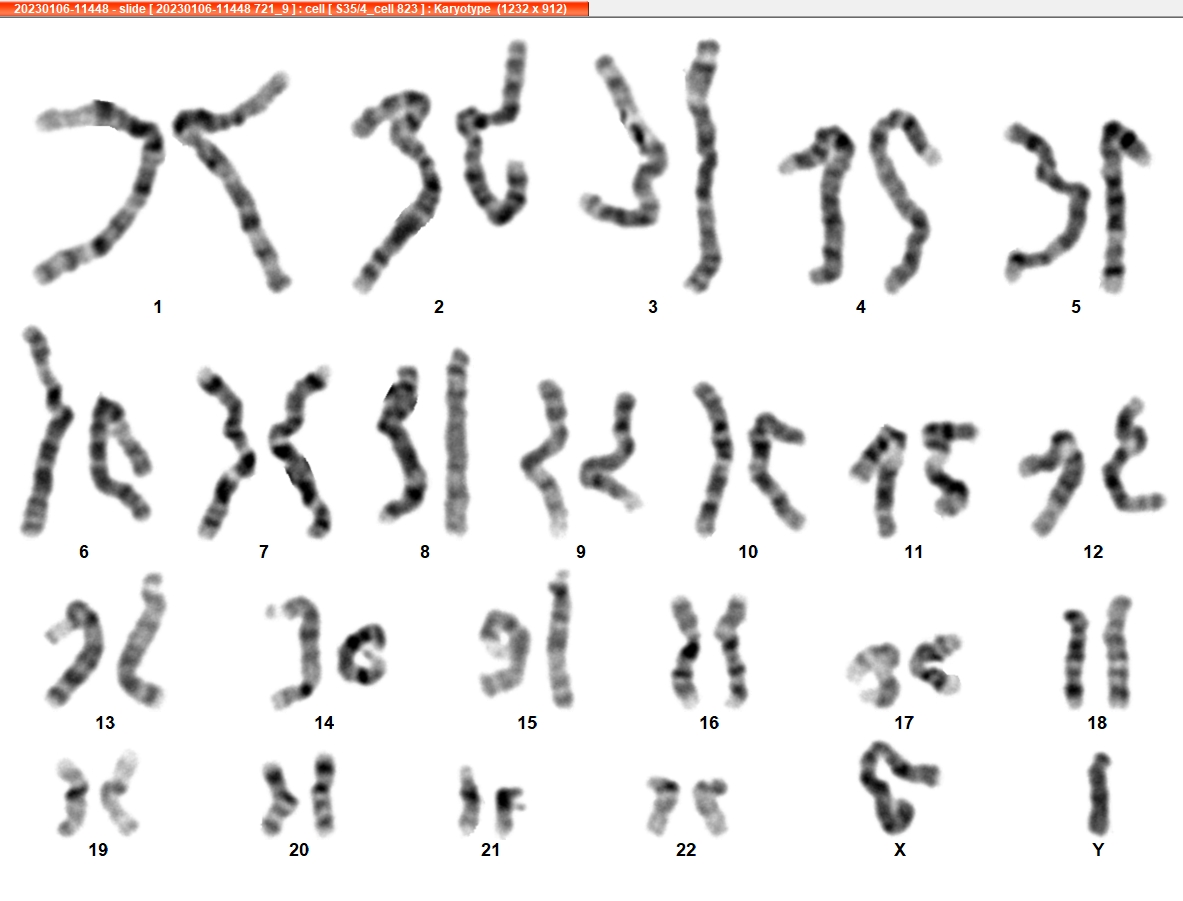 20230106-11448 - slide [ 20230106-11448 721_9 ] : cell [ S35/4_cell 823 ] : Karyotype (1232 x 912)
1 2 3 4 5
6 7 8 9 10 11 12
13 14 15 16 17 18
19 20 21 22 X Y